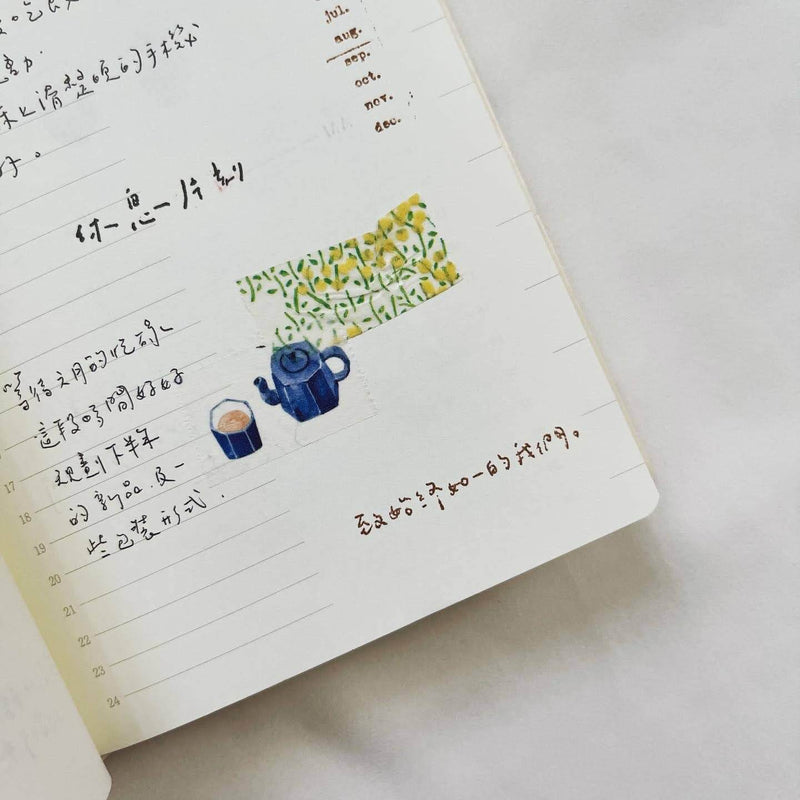 jul.
aug.
sep.
oct.
nov.
dec.
整頓的手機
休息一片刻
等待文月的忙碌、
這段時間好好
規劃下半年
的新品及一
些包裝形式.
致始終如一的我們。
17
18
19
20
21
22
23
24